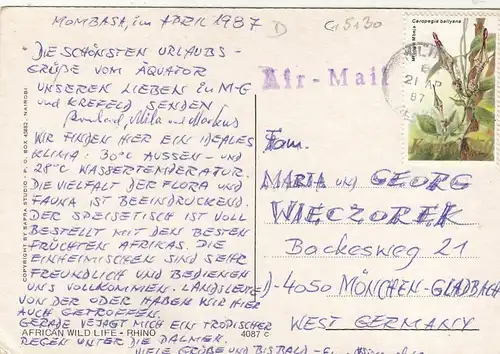 MOMBASA, im APRIL 1987
D
DIE SCHÖNSTEN URLAUBS-
GRÜßE VOM ÄQUATOR
UNSEREN LIEBEN in M-G
und KREFELD SENDEN
Mila und Markus
WIR FINDEN HIER EIN IDEALES
KLIMA: 30°C AUSSEN- UND
28°C WASSERTEMPERATUR.
DIE VIELFALT DER FLORA UND
FAUNA IST BEEINDRUCKEND.
DER SPEISETISCH IST VOLL
BESTELLT MIT DEN BESTEN
FRÜCHTEN AFRIKAS. DIE
EINHEIMISCHEN SIND SEHR
FREUNDLICH UND BEDIENEN
UNS VOLLKOMMEN. LANDSLEUTE
VON DER ODER HABEN WIR HIER
AUCH GETROFFEN.
GERADE VEJAGT MICH EIN TROPISCHER
REGEN UNTER DIE PALMEN.
VIELE GRÜßE UND BIS BALD
COPYRIGHT BY SAPRA STUDIO - P. O. BOX 45682, NAIROBI
AFRICAN WILD LIFE - RHINO 4087 c
Air-Mail
Ceropegia ballyana
21 AP
87
Fam.
MARIA UND GEORG
WIECZOREK
Backesweg 21
D-4050 MÖNCHEN-GLADBACH
WEST GERMANY